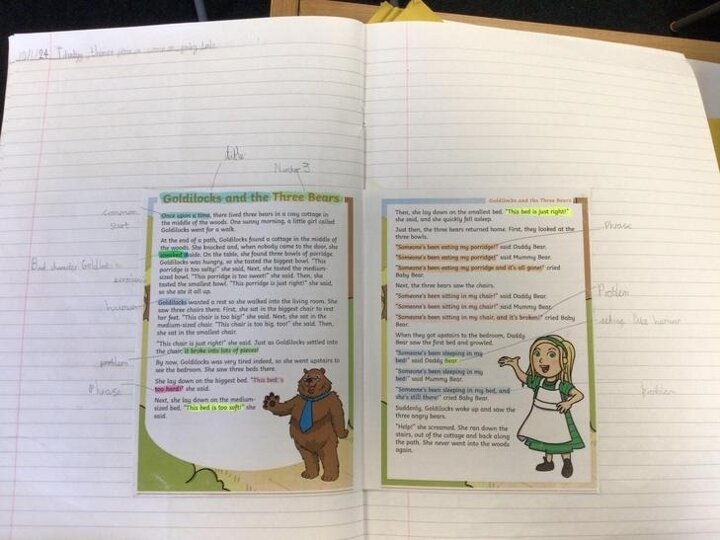 19/1/24
title
Number 3
Goldilocks and the Three Bears
common
start
Once upon a time, there lived three bears in a cosy cottage in
the middle of the woods. One sunny morning, a little girl called
Goldilocks went for a walk.
At the end of a path, Goldilocks found a cottage in the middle of
the woods. She knocked and, when nobody came to the door, she
sneaked inside. On the table, she found three bowls of porridge.
Goldilocks was hungry, so she tasted the biggest bowl. "This
porridge is too salty!" she said. Next, she tasted the medium-
sized bowl. "This porridge is too sweet!" she said. Then, she
tasted the smallest bowl. "This porridge is just right!" she said,
so she ate it all up.
Goldilocks wanted a rest so she walked into the living room. She
saw three chairs there. First, she sat in the biggest chair to rest
her feet. "This chair is too big!" she said. Next, she sat in the
medium-sized chair. "This chair is too big, too!" she said. Then,
she sat in the smallest chair.
"This chair is just right!" she said. Just as Goldilocks settled into
the chair, it broke into lots of pieces!
problem
By now, Goldilocks was very tired indeed, so she went upstairs to
see the bedroom. She saw three beds there.
Phrase
She lay down on the biggest bed. "This bed is
too hard!" she said.
Next, she lay down on the medium-
sized bed. "This bed is too soft!" she
said.
Goldilocks and the Three Bears
Then, she lay down on the smallest bed. "This bed is just right!"
she said, and she quickly fell asleep.
Just then, the three bears returned home. First, they looked at the
three bowls.
Phrase
"Someone's been eating my porridge!" said Daddy Bear.
"Someone's been eating my porridge!" said Mummy Bear.
"Someone's been eating my porridge and it's all gone!" cried
Baby Bear.
Next, the three bears saw the chairs.
"Someone's been sitting in my chair!" said Daddy Bear.
Problem
"Someone's been sitting in my chair!" said Mummy Bear.
"Someone's been sitting in my chair, and it's broken!" cried Baby
Bear.
acting like human
When they got upstairs to the bedroom, Daddy
Bear saw the first bed and growled.
"Someone's been sleeping in my
bed!" said Daddy Bear.
"Someone's been sleeping in my
bed!" said Mummy Bear.
"Someone's been sleeping in my bed, and
she's still there!" cried Baby Bear.
problem
Suddenly, Goldilocks woke up and saw the
three angry bears.
"Help!" she screamed. She ran down the
stairs, out of the cottage and back along
the path. She never went into the woods
again.